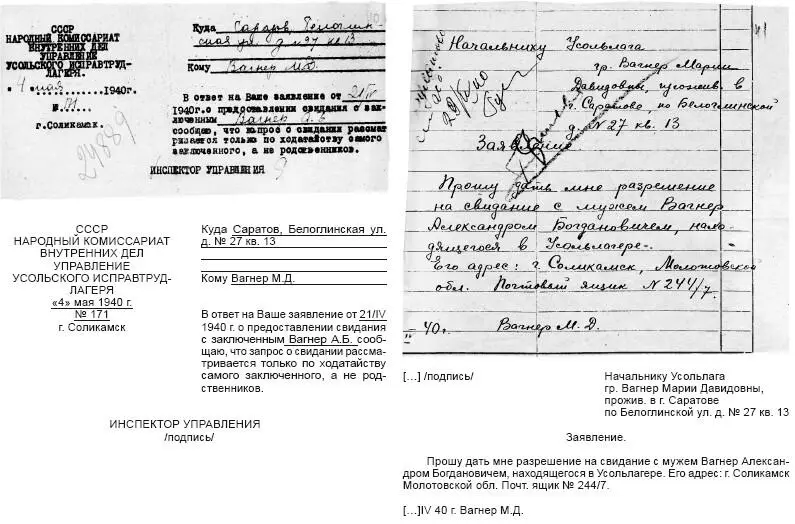 СССР
НАРОДНЫЙ КОМИССАРИАТ
ВНУТРЕННИХ ДЕЛ
УПРАВЛЕНИЕ
УСОЛЬСКОГО ИСПРАВТРУД-
ЛАГЕРЯ.
4 мая 1940г.
№ 171
г.Соликамск.
24889
Куда Саратов, Белоглин-
ская ул. д. №27 кв 13
Кому Вагнер М.Д.
В ответ на Ваше заявление от 21/IV
1940г.о предоставлении свидания с зак-
люченным Вагнер А.Б.
сообщаем, что вопрос о свидании рассмат
ривается только по ходатайству самого
заключенного, а не родственников.
ИНСПЕКТОР УПРАВЛЕНИЯ
41
Начальнику Усольлага
гр. Вагнер Марии
Давидовны, прожив. в
г. Саратове, по Белоглинской
д. № 27 кв. 13
Заявление
Прошу дать мне разрешение
на свидание с мужем Вагнер
Александром Богдановичем, нахо-
дящегося в Усольлагере.
Его адрес: г. Соликамск, Молотовской
обл. Почтовый ящик № 244/7.
40г. Вагнер М. Д.
СССР
НАРОДНЫЙ КОМИССАРИАТ
ВНУТРЕННИХ ДЕЛ
УПРАВЛЕНИЕ
УСОЛЬСКОГО ИСПРАВТРУД-
ЛАГЕРЯ
«4» мая 1940 г.
№ 171
г. Соликамск
Куда Саратов, Белоглинская ул.
д. № 27 кв. 13
Кому Вагнер М.Д.
В ответ на Ваше заявление от 21/IV
1940 г. о предоставлении свидания
с заключенным Вагнер А.Б. сооб-
щаю, что запрос о свидании рассма-
тривается только по ходатайству
самого заключенного, а не род-
ственников.
ИНСПЕКТОР УПРАВЛЕНИЯ
/подпись/
[...] /подпись/
Начальнику Усольлага
гр. Вагнер Марии Давидовны,
прожив. в г. Саратове
по Белоглинской ул. д. № 27 кв. 13
Заявление.
Прошу дать мне разрешение на свидание с мужем Вагнер Алексан-
дром Богдановичем, находящегося в Усольлагере. Его адрес: г. Соликамск
Молотовской обл. Почт. ящик № 244/7.
[...]IV 40 г. Вагнер М.Д.